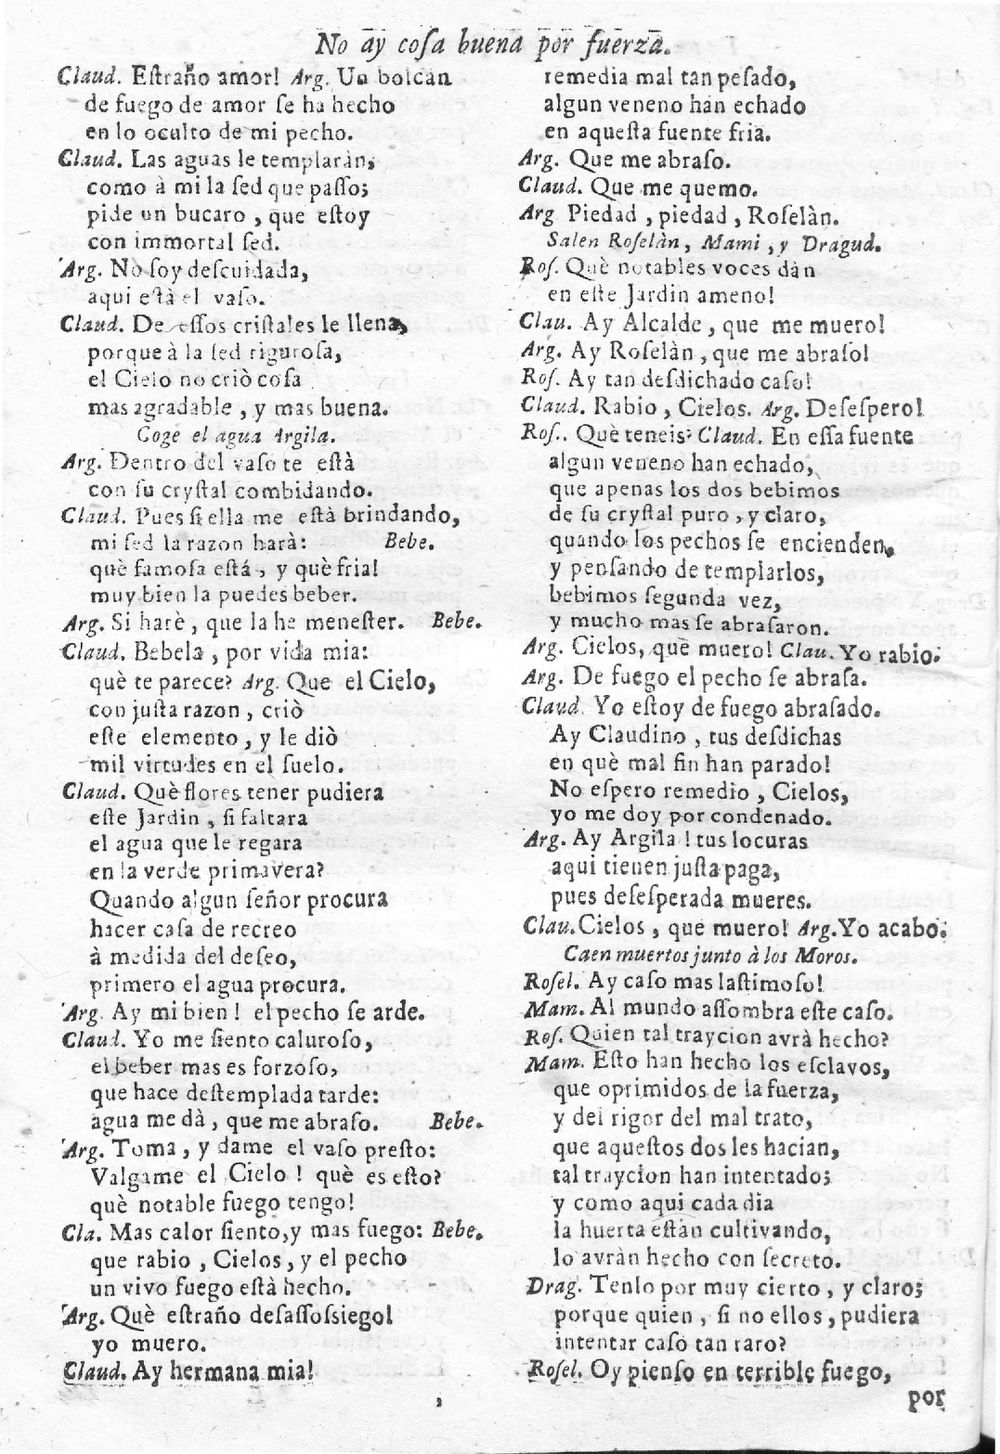 No ay cosa buena por fuerza.
Claud. Estraño amor! Arg. Un bolcàn
de fuego de amor se ha hecho
en lo oculto de mi pecho.
Claud. Las aguas le templaràn,
como à mi la sed que passo;
pide un bucaro, que estoy
con immortal sed.
Arg. No soy descuidada,
aqui està el vaso.
Claud. De essos cristales le llena,
porque à la sed rigurosa,
el Cielo no criò cosa
mas agradable, y mas buena.
Coge el agua Argila.
Arg. Dentro del vaso te està
con su crystal combidando.
Claud. Pues si ella me està brindando,
mi sed la razon harà: Bebe.
què famosa està, y què fria!
muy bien la puedes beber.
Arg. Si harè, que la he menester. Bebe.
Claud. Bebela, por vida mia:
què te parece? Arg. Que el Cielo,
con justa razon, criò
este elemento, y le diò
mil virtudes en el suelo.
Claud. Què flores tener pudiera
este Jardin, si faltara
el agua que le regara
en la verde primavera?
Quando algun señor procura
hacer casa de recreo
à medida del deseo,
primero el agua procura.
Arg. Ay mi bien! el pecho se arde.
Claud. Yo me siento caluroso,
el beber mas es forzoso,
que hace destemplada tarde:
agua me dà, que me abraso. Bebe.
Arg. Toma, y dame el vaso presto:
Valgame el Cielo! què es esto?
què notable fuego tengo!
Cla. Mas calor siento, y mas fuego: Bebe.
que rabio, Cielos, y el pecho
un vivo fuego està hecho.
Arg. Què estraño desassossiego!
yo muero.
Claud. Ay hermana mia!
remedia mal tan pesado,
algun veneno han echado
en aquesta fuente fria.
Arg. Que me abraso.
Claud. Que me quemo.
Arg. Piedad, piedad, Roselàn.
Salen Roselàn, Mami, y Dragud.
Ros. Què notables voces dàn
en este Jardin ameno!
Clau. Ay Alcalde, que me muero!
Arg. Ay Roselàn, que me abraso!
Ros. Ay tan desdichado caso!
Claud. Rabio, Cielos. Arg. Desespero!
Ros. Què teneis? Claud. En essa fuente
algun veneno han echado,
que apenas los dos bebimos
de su crystal puro, y claro,
quando los pechos se encienden,
y pensando de templarlos,
bebimos segunda vez,
y mucho mas se abrasaron.
Arg. Cielos, què muero! Clau. Yo rabio.
Arg. De fuego el pecho se abrasa.
Claud. Yo estoy de fuego abrasado.
Ay Claudino, tus desdichas
en què mal fin han parado!
No espero remedio, Cielos,
yo me doy por condenado.
Arg. Ay Argila! tus locuras
aqui tienen justa paga,
pues desesperada mueres.
Clau. Cielos, que muero! Arg. Yo acabo.
Caen muertos junto à los Moros.
Rosel. Ay caso mas lastimoso!
Mam. Al mundo assombra este caso.
Ros. Quien tal traycion avrà hecho?
Mam. Esto han hecho los esclavos,
que oprimidos de la fuerza,
y del rigor del mal trato,
que aquestos dos les hacian,
tal traycion han intentado;
y como aqui cada dia
la huerta estàn cultivando,
lo avràn hecho con secreto.
Drag. Tenlo por muy cierto, y claro;
porque quien, si no ellos, pudiera
intentar caso tan raro?
Rosel. Oy pienso en terrible fuego,
por